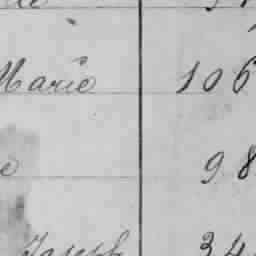 Marie 106
98
Joseph 34